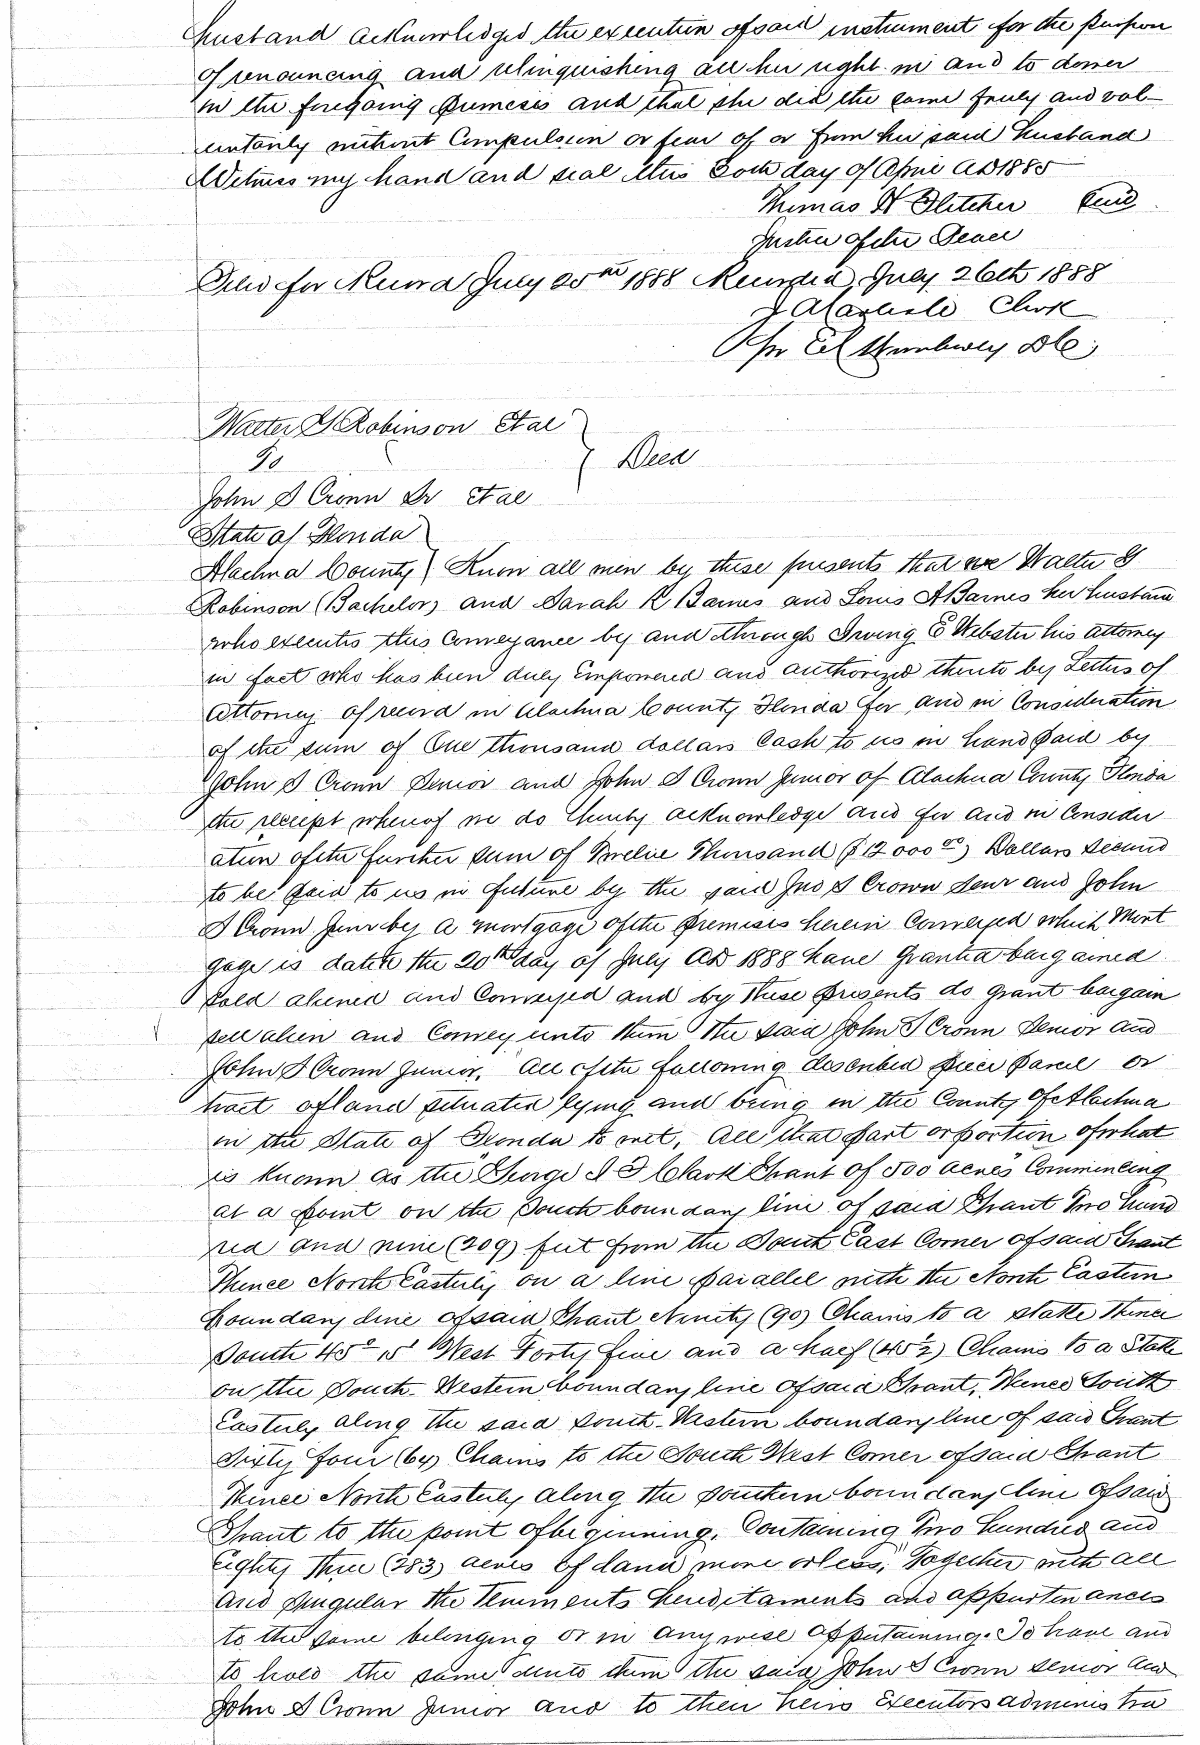 husband acknowledged the execution of said instrument for the purpose
of renouncing and relinquishing all her right in and to dower
in the foregoing premises and that she did the same freely and vol-
untarily without Compulsion or fear of or from her said husband
Witness my hand and seal this 30th day of April AD 1885
Thomas H Fletcher Seal
Justice of the Peace
Filed for Record July 20th 1888 Recorded July 26th 1888
J A Carlisle Clerk
Per DC
Walter G Robinson Et al
To } Deed
John S Crown Sr et al
State of Florida
Alachua County } Know all men by these presents that we Walter G
Robinson (Bachelor) and Sarah R Barnes and Louis A Barnes her husband
who executes this Conveyance by and through Irving E Webster his attorney
in fact who has been duly Empowered and authorized thereto by Letters of
Attorney of record in Alachua County Florida for and in Consideration
of the sum of One thousand dollars Cash to us in hand paid by
John S Crown Senior and John S Crown Junior of Alachua County Florida
the receipt whereof we do hereby acknowledge and for and in Consider
ation of the further sum of Twelve Thousand ($12000 00) Dollars secured
to be paid to us in future by the said Jno S Crown Senr and John
S Crown Junr by a mortgage of the premises herein Conveyed which Mort
gage is dated the 20th day of July AD 1888 have Granted bargained
sold aliened and Conveyed and by these presents do grant bargain
sell alien and Convey unto them the said John S Crown Senior and
John S Crown Junior, "All of the following described piece parcel or
tract of land situated lying and being in the County of Alachua
in the State of Florida to wit, All that part or portion of what
is known as the "George I F Clark Grant of 500 acres" Commencing
at a point on the South boundary line of said Grant Two hund
red and nine (209) feet from the South East Corner of said Grant
Thence North Easterly on a line parallel with the North Eastern
boundary line of said Grant Ninety (90) Chains to a stake Thence
South 45° 15' West Forty five and a half (45 1/2) Chains to a Stake
on the South-Western boundary line of said Grant, Thence South
Easterly along the said South-Western boundary line of said Grant
Sixty four (64) Chains to the South West Corner of said Grant
Thence North Easterly along the southern boundary line of said
Grant to the point of beginning. Containing Two hundred and
Eighty Three (283) acres of land more or less," Together with all
and singular the Tenements hereditaments and appurtenances
to the same belonging or in any wise appertaining. To have and
to hold the same unto them the said John S Crown senior and
John S Crown Junior and to their heirs Executors administra